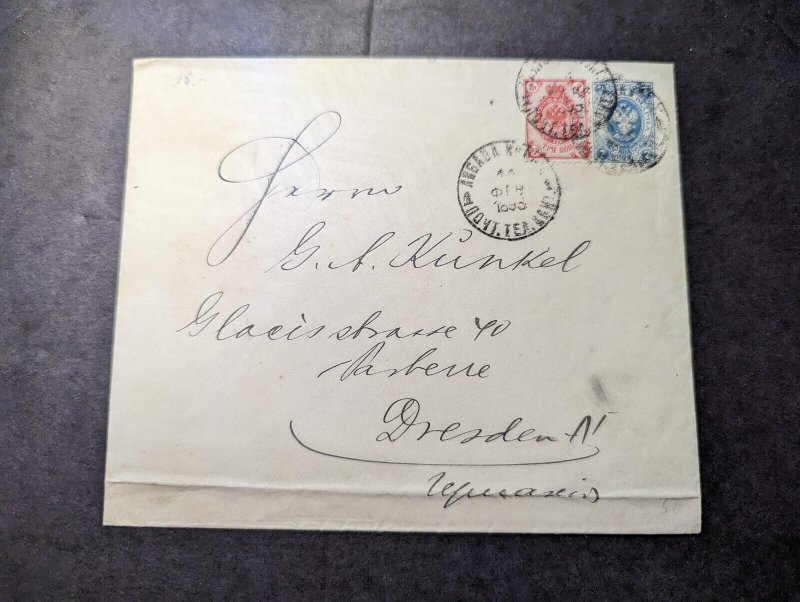 18.-
ЛИБАВА
11
ФЕВ
ПОЧТ. ТЕЛ. КОНТ.
Herrn
G. A. Kunkel
Glacisstrasse 40
Parterre
Dresden N
Германия
50